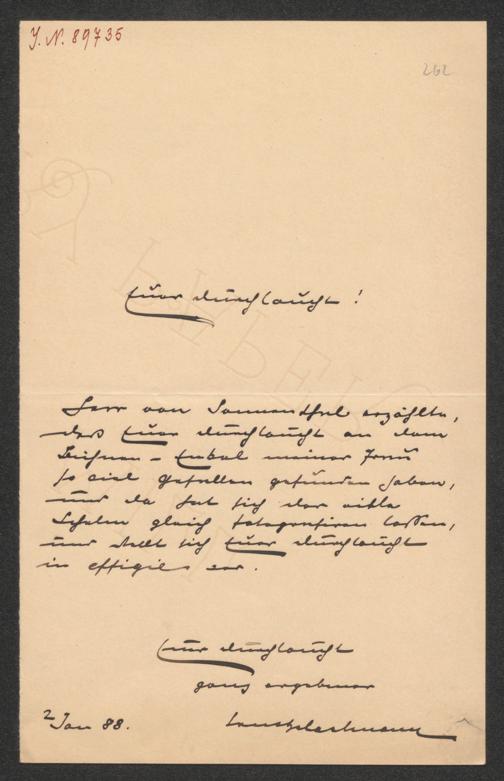 J. N. 89735
262
Euer Durchlaucht!
Herr von Sonnenthal erzählte,
daß Euer Durchlaucht an dem
Bühnen-Enkel meiner Frau
so viel Gefallen gefunden haben,
und da hat sich der eitle
Schelm gleich fotografiren lassen,
und stellt sich Euer Durchlaucht
in effigie vor.
Euer Durchlaucht
ganz ergebener
2 Jan 88.